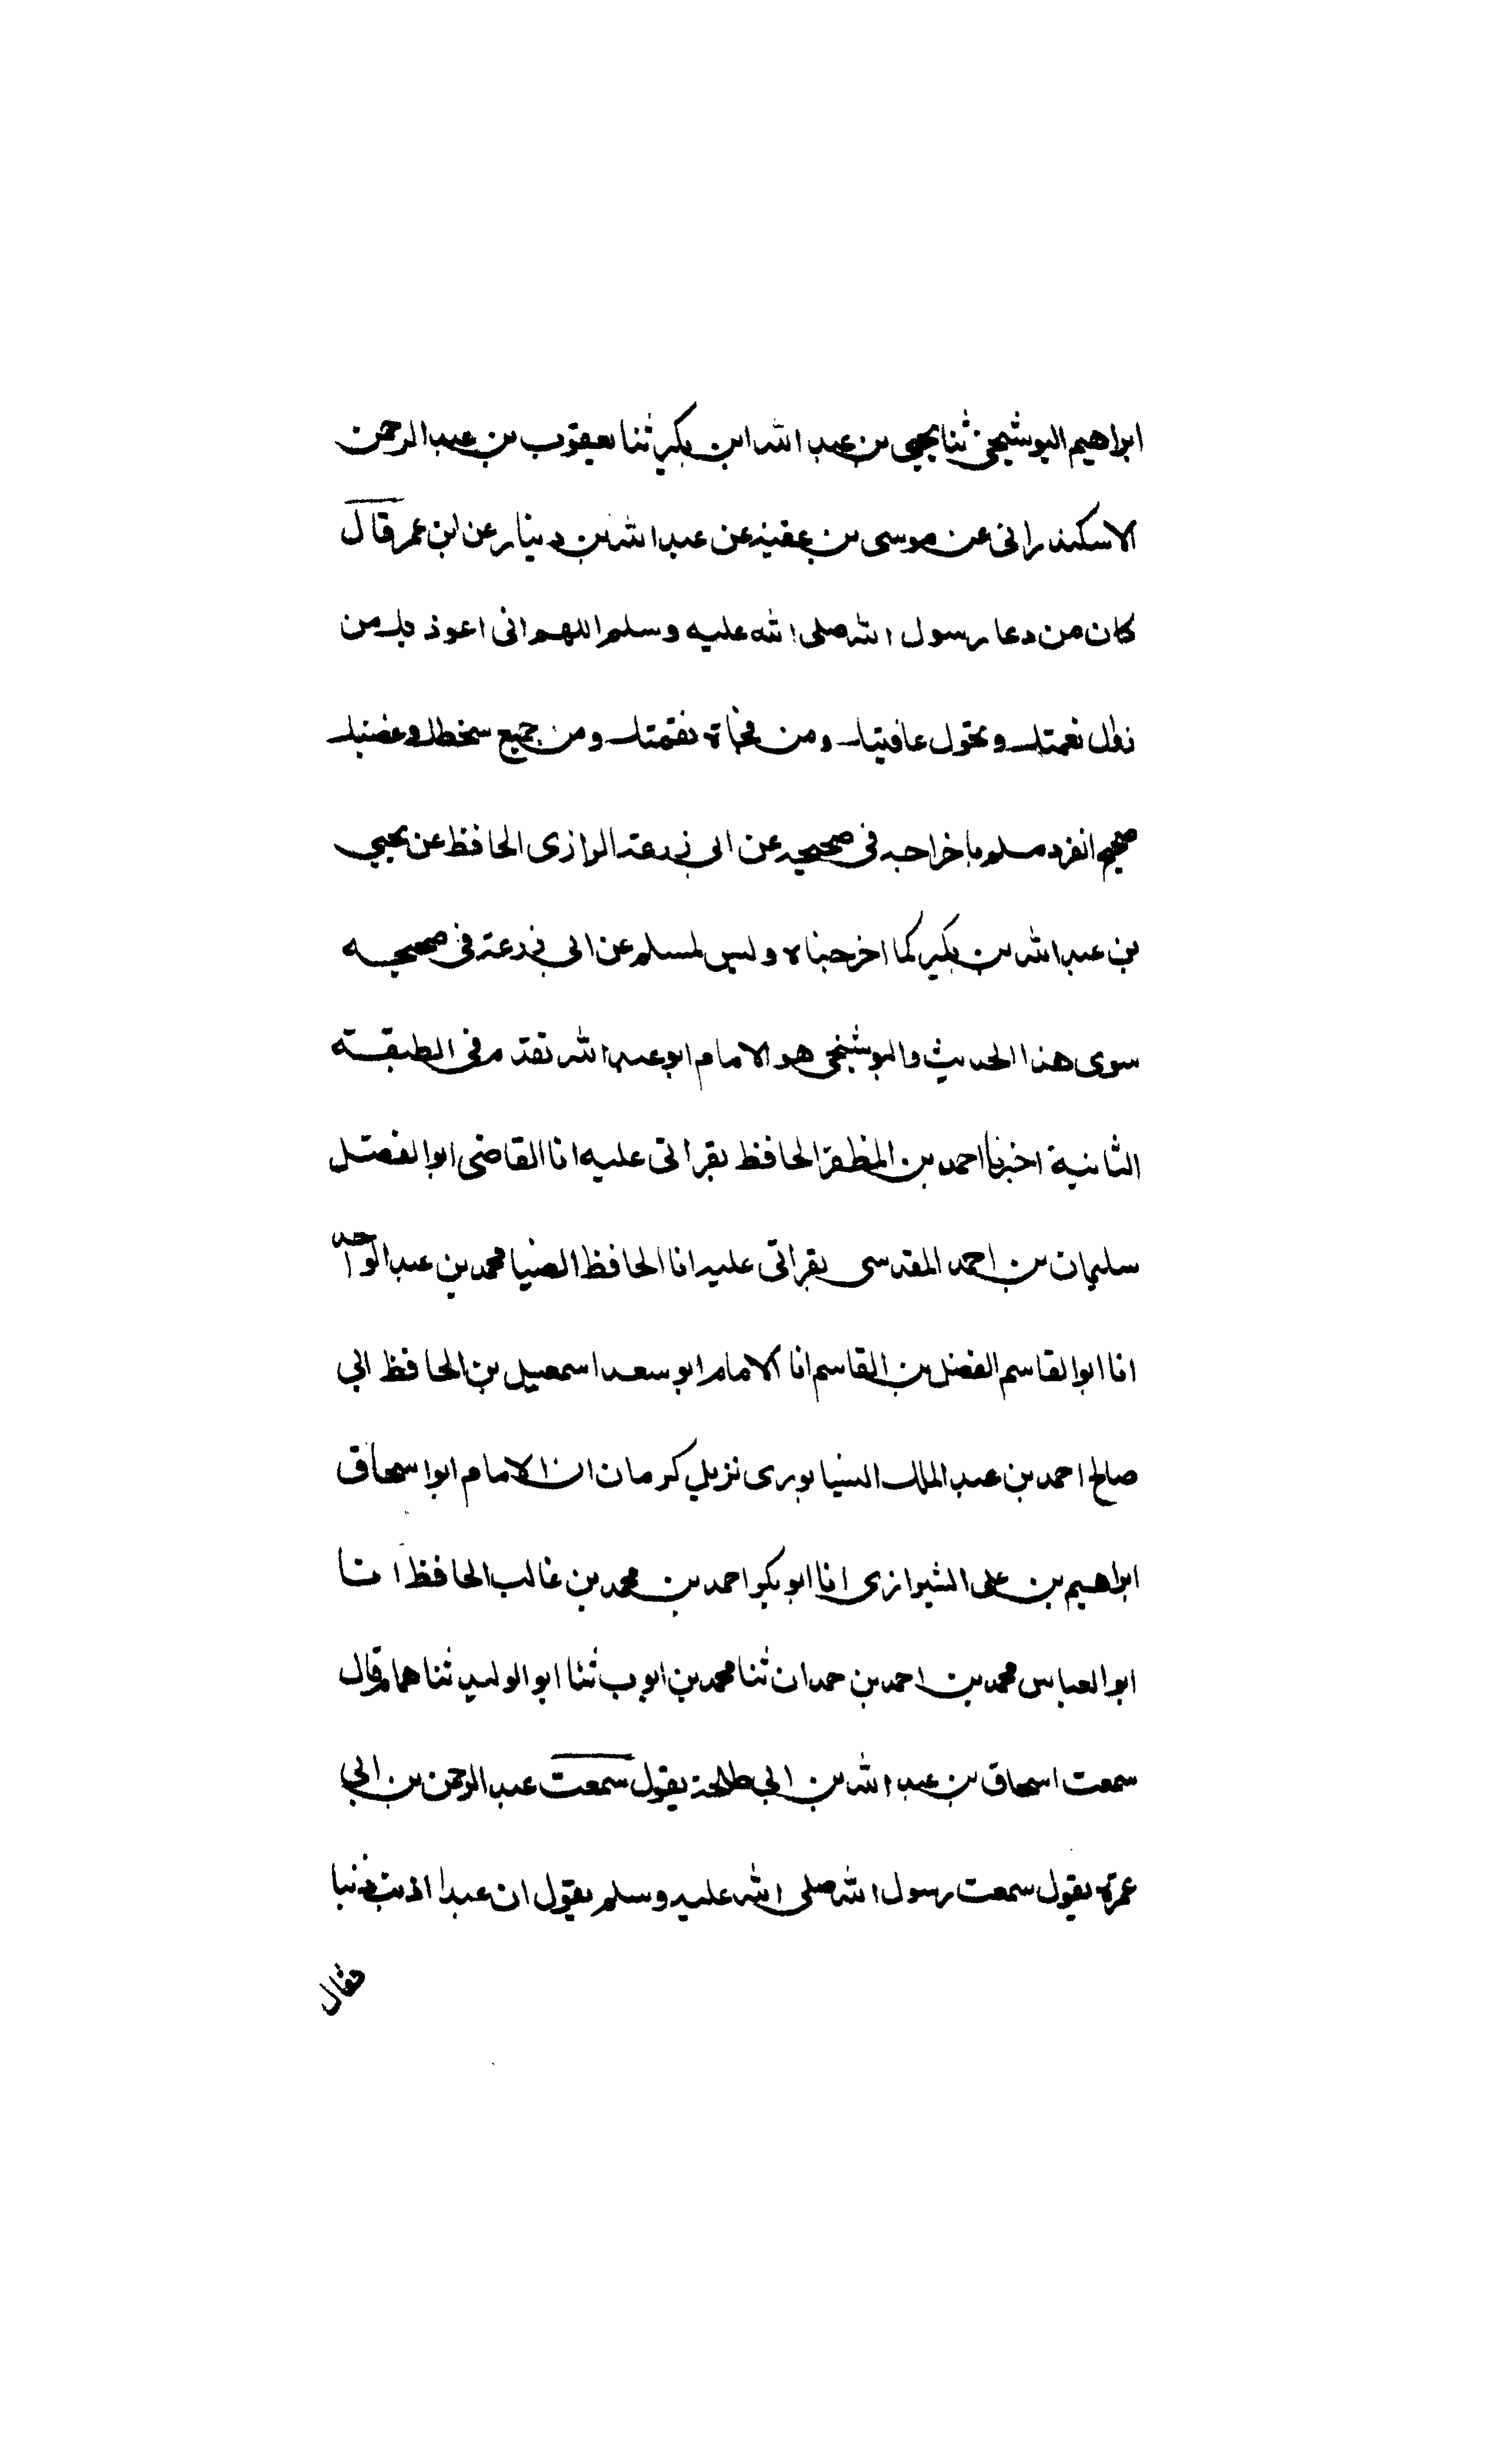 ابراهيم البوشنجى ثنا يحيى بن عبد الله ابن بكير ثنا يعقوب بن عبد الرحمن
الاسكندرانى عن موسى بن عقبة عن عبد الله بن دينار عن ابن عمر قال
كان من دعا رسول الله صلى الله عليه وسلم اللهم انى اعوذ بك من
زوال نعمتك وتحول عافيتك ومن فجاة نقمتك ومن جميع سخطك وغضبك
صحيح انفرد مسلم باخراجه فى صحيحه عن ابى زرعة الرازى الحافظ عن يحيى
بن عبد الله بن بكير كما اخرجناه وليس لمسلم عن ابى زرعة فى صحيحه
سوى هذا الحديث والبوشنجى هو الامام ابو عبد الله تقدم فى الطبقة
الثانية اخبرنا احمد بن المظفر الحافظ بقراتى عليه انا القاضى ابو الفضل
سليمان بن احمد المقدسى بقراتى عليه انا الحافظ الضيا محمد بن عبد الواحد
انا ابو القاسم الفضل بن القاسم انا الامام ابو سعد اسمعيل بن الحافظ ابي
صالح احمد بن عبد الملك النيسابورى نزيل كرمان انا الامام ابو اسحاق
ابراهيم بن على الشيرازى انا ابو بكر احمد بن محمد بن غالب الحافظ انا
ابو العباس محمد بن احمد بن حمدان ثنا محمد بن ايوب ثنا ابو الوليد ثنا همام قال
سمعت اسحاق بن عبد الله بن ابي طلحة يقول سمعت عبد الرحمن بن ابي
عمرة يقول سمعت رسول الله صلى الله عليه وسلم يقول ان عبدا اذنب ذنبا
فقال